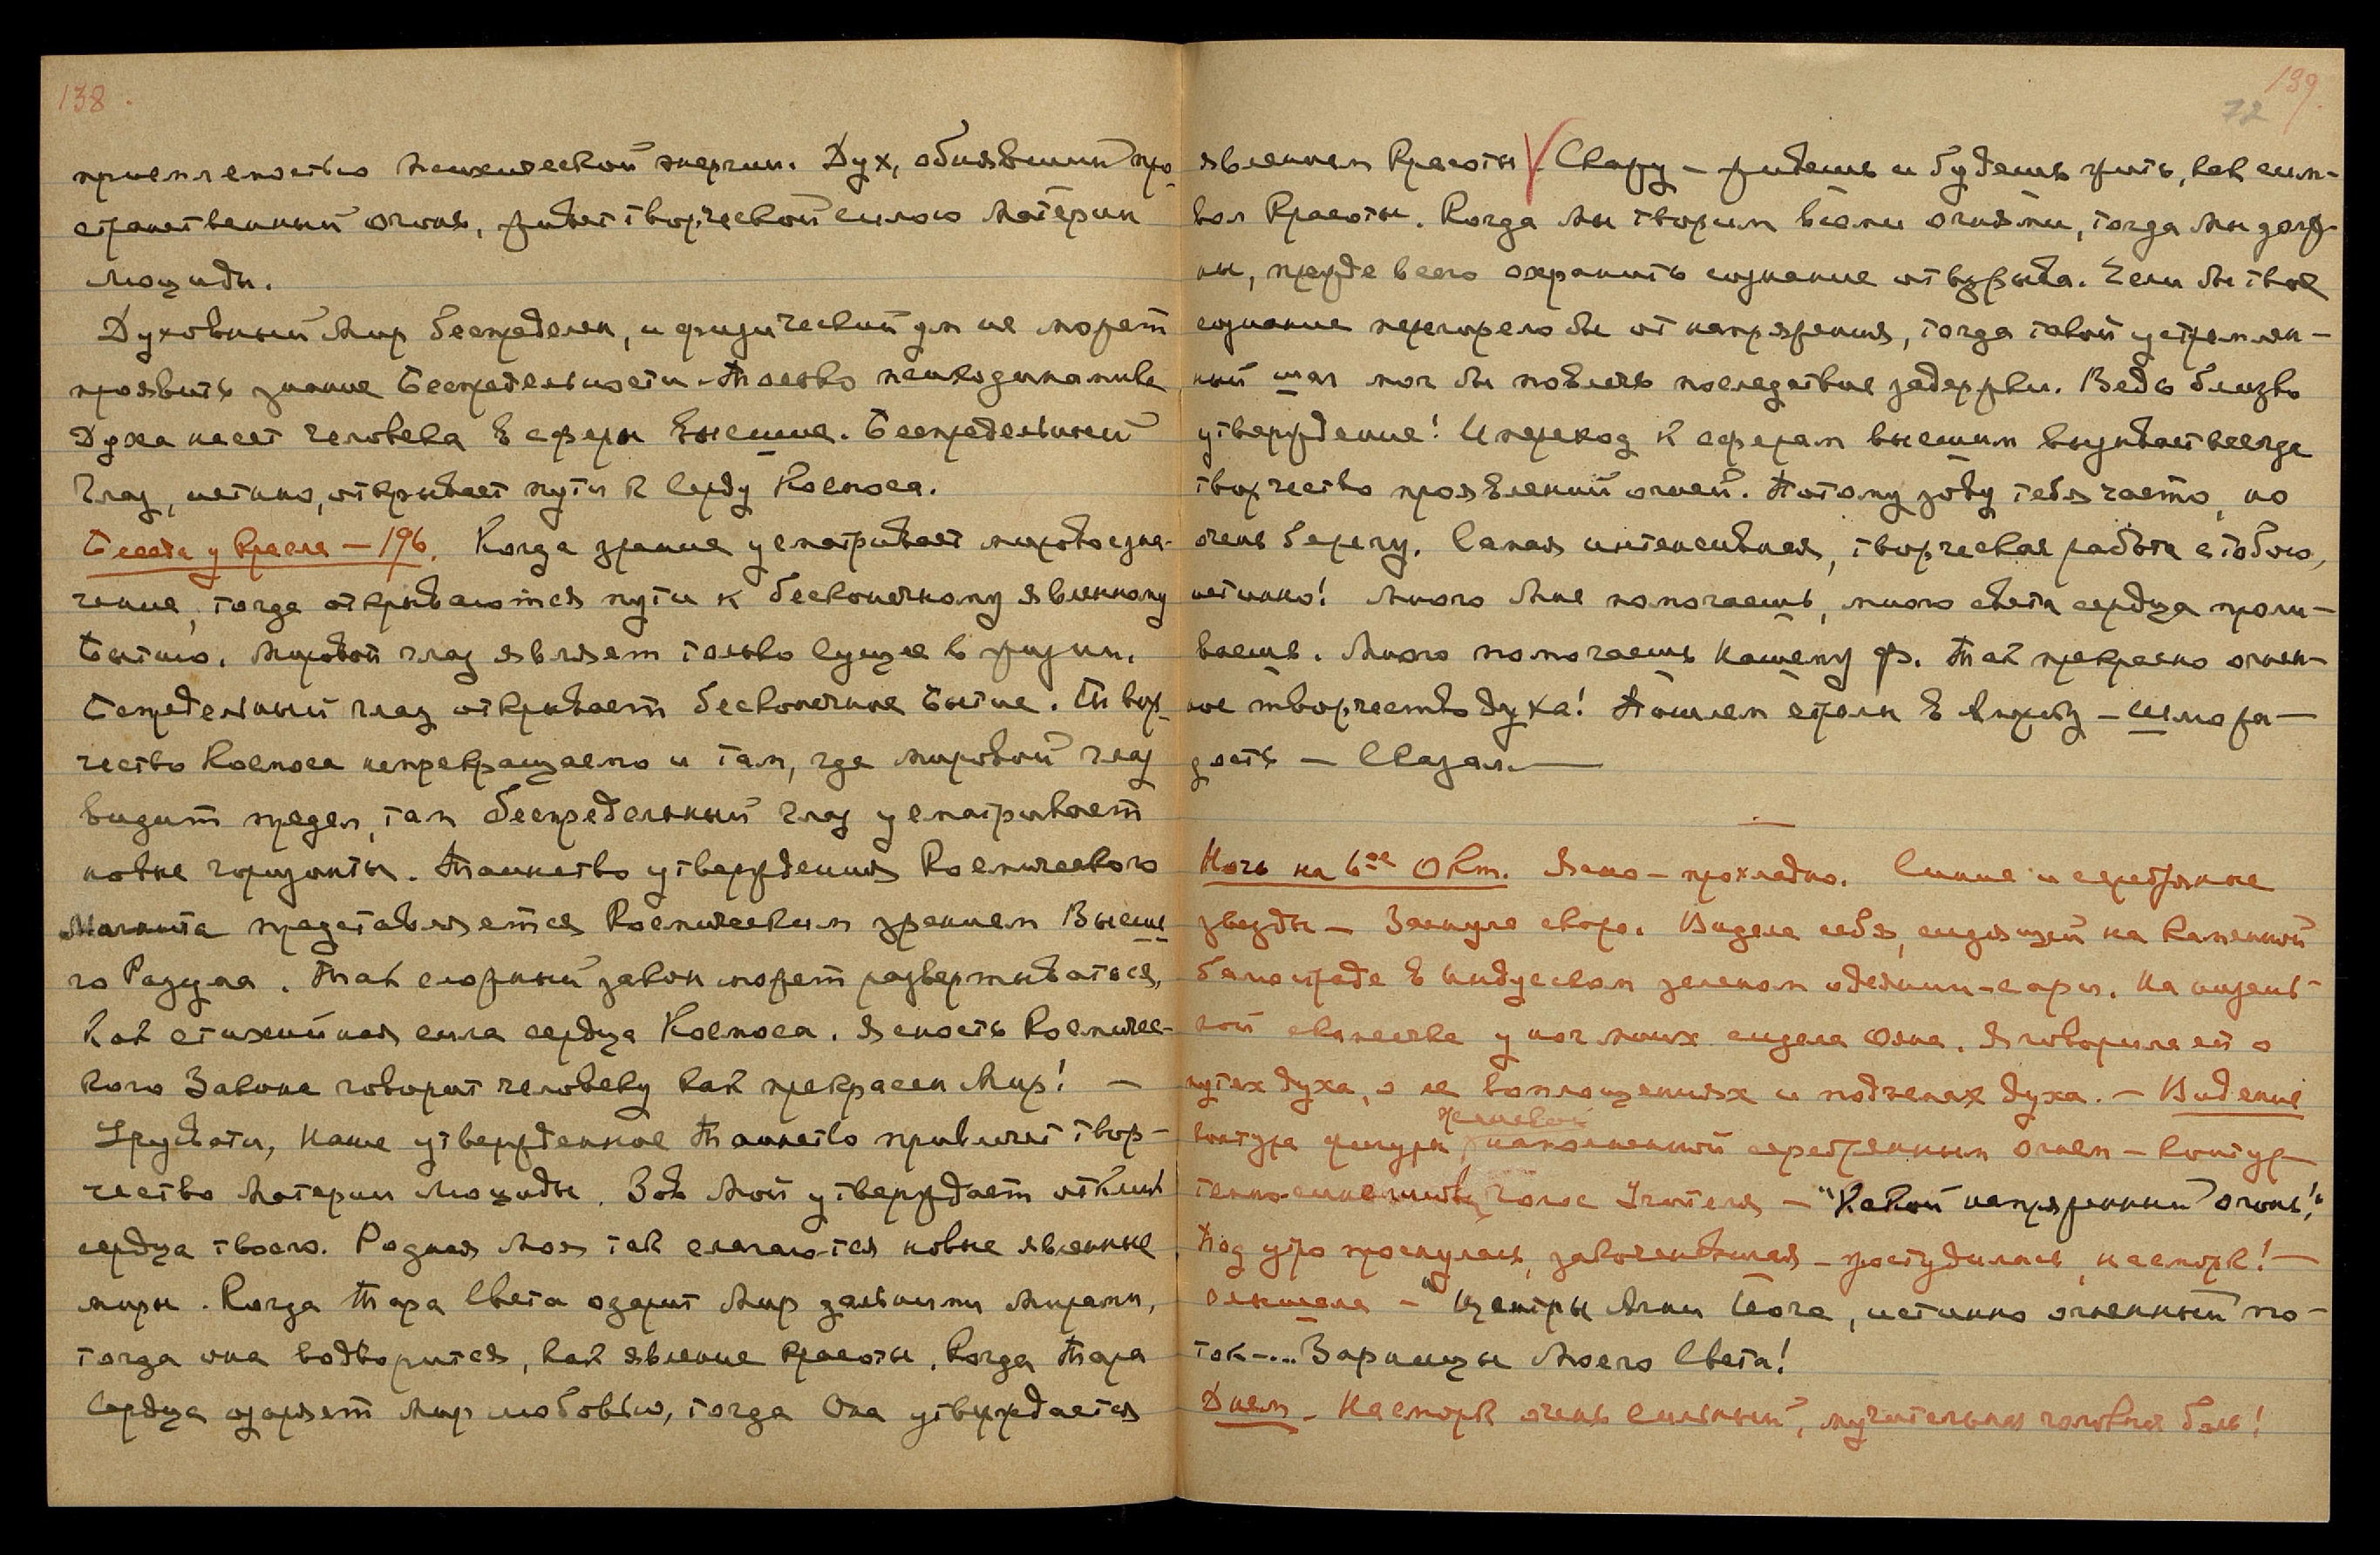 138.
приемлемостью психической энергии. Дух, обнявший про-
странственный огонь, живет творческой силою Матерiи
Люциды.
Духовный Мир беспределен, и физический ум не может
проявить знание Беспредельности. Только психодинамика
Духа несет человека в сферы Высшие. Беспредельный
Глаз, истинно, открывает пути к Сердцу Космоса.
Беседа у Кресла – 196. Когда зрение усматривает мировое зна-
чение, тогда открываются пути к бесконечному явленному
Бытию. Мировой глаз являет только Сущее в жизни.
Беспредельный глаз открывает бесконечное Бытие. Твор-
чество Космоса непрекращаемо и там, где мировой глаз
видит предел, там беспредельный глаз усматривает
новые горизонты. Таинство утверждения Космического
Магнита представляется Космическим зрением Высше-
го Разума. Так сложный закон может развертываться,
как стихийная сила сердца Космоса. Ясность Космичес-
кого Закона говорит человеку как прекрасен Мир! –
Урусвати, Наше утвержденное Таинство привлечет твор-
чество Материи Люциды. Зов Мой утверждает отклик
сердца твоего. Родная Моя так слагаются новые явленные
миры. Когда Тара Света озарит Мир дальними Мирами,
тогда она водворится, как явление Красоты. Когда Тара
Сердца озаряет Мир любовью, тогда Она утверждается
139.
72
явлением Красоты. Скажу – живешь и будешь жить, как сим-
вол Красоты. Когда Мы творим всеми огнями, тогда Мы долж-
ны, прежде всего охранить сознание от взрыва. Если бы твое
сознание перегорело бы от напряжения, тогда такой устремлен-
ный шаг мог бы повлечь последствие задержки. Ведь близко
утверждение! И переход к сферам высшим вызывает всегда
творчество проявлений огней. Потому зову тебя часто, но
очень берегу. Самая интенсивная, творческая работа с тобою,
истинно! Много Мне помогаешь, много света сердца проли-
ваешь. Много помогаешь Нашему Ф. Так прекрасно огнен-
ное творчество духа! Пошлем стрелы в – шлю ра-
дость – Сказал. –
Ночь на 6ое Окт. Ясно – прохладно. Синие и серебряные
звезды – Заснула скоро. Видела себя, сидящей на каменной
балюстраде в индусском зеленом одеянии – сари. На низень-
кой скамеечке у ног моих сидела Ояна. Я говорила ей о
путях духа, о ее воплощениях и подъемах духа. – Видение
контура фигуры наполненной серебрянным огнем – контур
темно-синий голос Учителя – "Какой напряженный огонь!"
Под утро проснулась, закоченевшая – простудилась, насморк! –
Слышала – "Центры Агни Йога, истинно огненный по-
ток – ... Зарницы Моего Света!
Днем – Насморк очень сильный, мучительная головная боль!